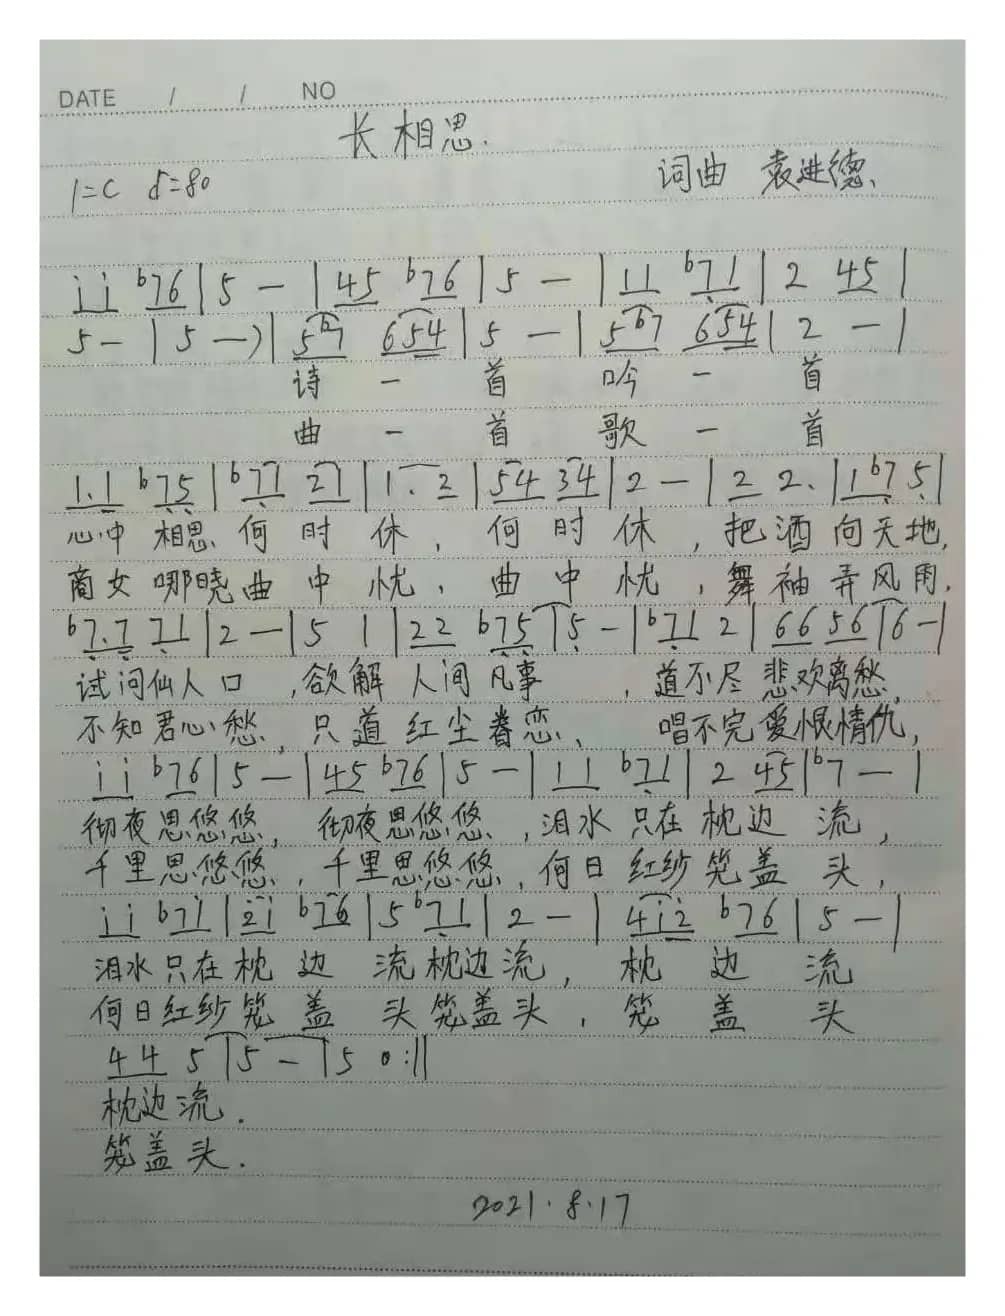 DATE / / NO
长相思.
1=C ♩=80 词曲 袁进德、
i i b76 | 5 — | 45 b76 | 5 — | 11 b71 | 2 45 |
5 — | 5 —) | 5b7 654 | 5 — | 5b7 654 | 2 — |
诗 一 首 吟 一 首
曲 一 首 歌 一 首
1.1 b75 | b771 21 | 1. 2 | 54 34 | 2 — | 2 2. | 1b7 5 |
心中 相思 何 时 休 , 何 时 休 , 把酒向天地,
商女哪晓曲 中 忧 , 曲 中 忧 , 舞袖弄风雨.
b7.7 71 | 2 — | 5 1 | 22 b75 | 5 — | b71 2 | 66 56 | 6 — |
试问仙人口 ,欲解 人间 凡事 , 道不尽 悲欢离愁,
不知君心愁, 只道 红尘眷恋、 唱不完爱恨情仇,
i i b76 | 5 — | 45 b76 | 5 — | 11 b71 | 2 45 | b7 — |
彻夜思悠悠, 彻夜思悠悠 , 泪水 只在 枕边 流 ,
千里思悠悠 , 千里思悠悠 , 何日 红纱笼盖 头 ,
i i b7i | 2i b76 | 5 b71 | 2 — | 4i2 b76 | 5 — |
泪水只在枕 边 流枕边流, 枕 边 流
何日红纱笼 盖 头笼盖头 , 笼 盖 头
44 5 | 5 — | 5 0 :||
枕边流 .
笼盖头 .
2021.8.17